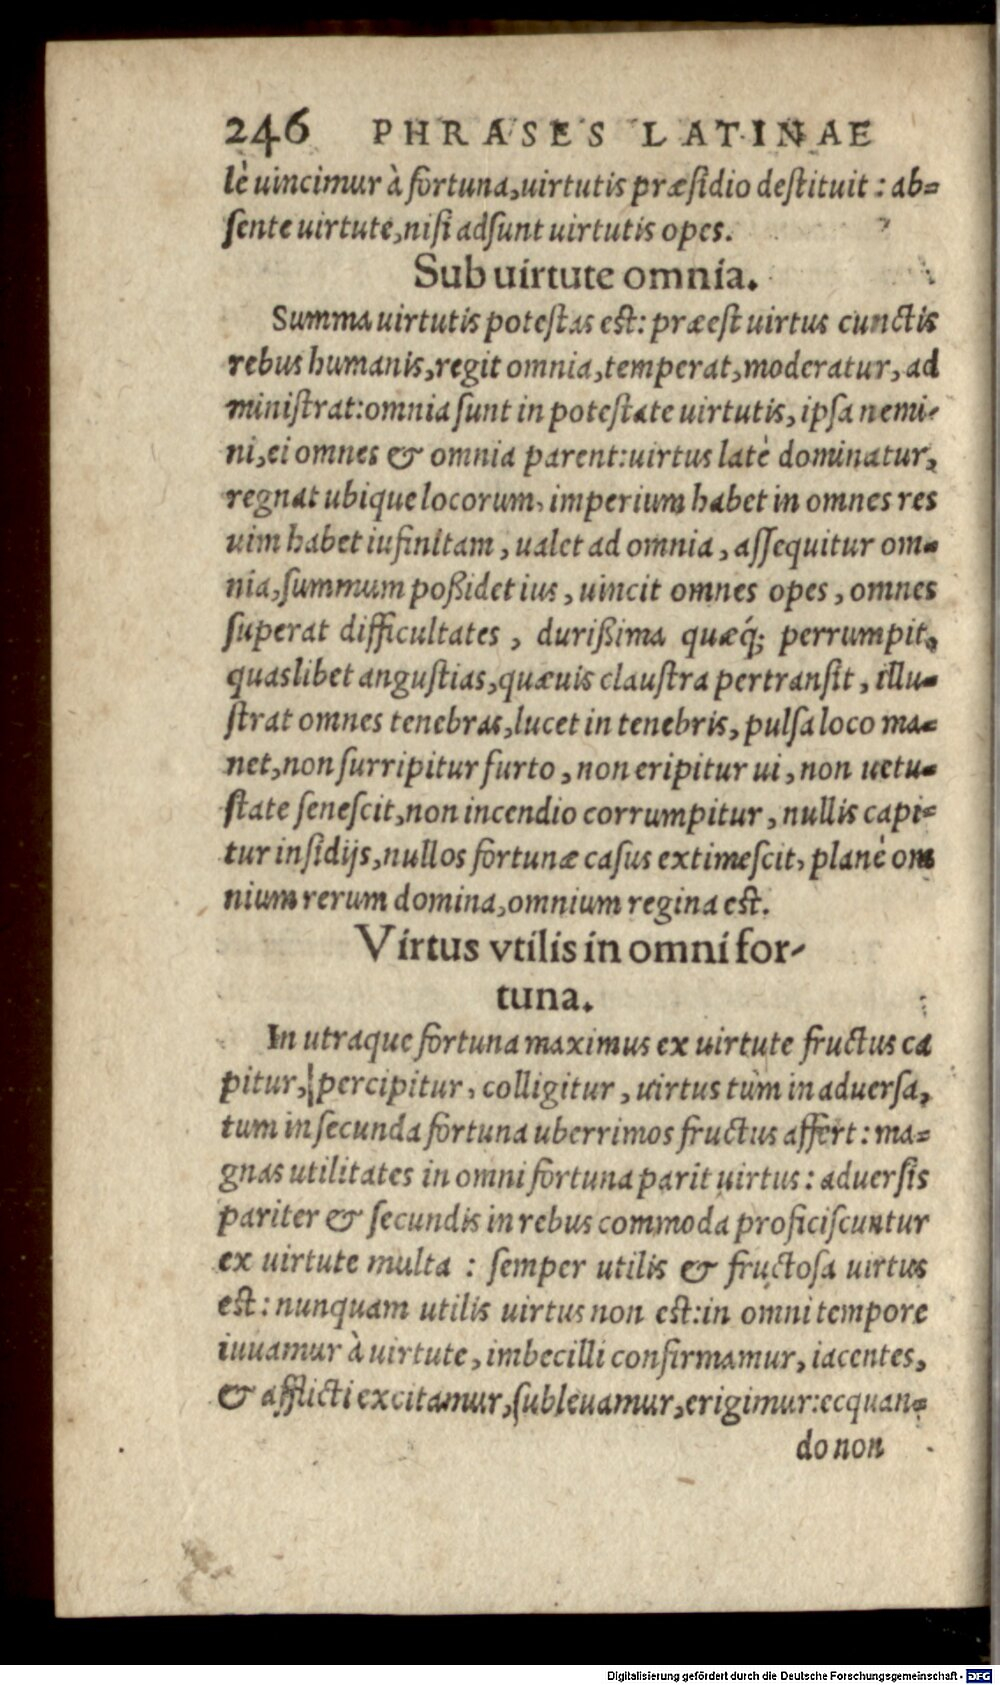 246 PHRASES LATINAE
lè uincimur à fortuna, uirtutis præsidio destituit : ab=
sente uirtute, nisi adsunt uirtutis opes.
Sub uirtute omnia.
Summa uirtutis potestas est: præest uirtus cunctis
rebus humanis, regit omnia, temperat, moderatur, ad
ministrat: omnia sunt in potestate uirtutis, ipsa nemi-
ni, ei omnes & omnia parent: uirtus latè dominatur,
regnat ubique locorum, imperium habet in omnes res
uim habet iufinitam, ualet ad omnia, assequitur om=
nia, summum poßidet ius, uincit omnes opes, omnes
superat difficultates, durißima quæq́; perrumpit,
quaslibet angustias, quæuis claustra pertransit, illu=
strat omnes tenebras, lucet in tenebris, pulsa loco ma=
net, non surripitur furto, non eripitur ui, non uetu=
state senescit, non incendio corrumpitur, nullis capi=
tur insidijs, nullos fortunæ casus extimescit, planè om
nium rerum domina, omnium regina est.
Virtus vtilis in omni for-
tuna.
In utraque fortuna maximus ex uirtute fructus ca
pitur, percipitur, colligitur, uirtus tùm in aduersa,
tum in secunda fortuna uberrimos fructus affert: ma=
gnas utilitates in omni fortuna parit uirtus: aduersis
pariter & secundis in rebus commoda proficiscuntur
ex uirtute multa : semper utilis & fructosa uirtus
est: nunquam utilis uirtus non est: in omni tempore
iuuamur à uirtute, imbecilli confirmamur, iacentes,
& afflicti excitamur, subleuamur, erigimur: ecquan=
do non
Digitalisierung gefördert durch die Deutsche Forschungsgemeinschaft - DFG